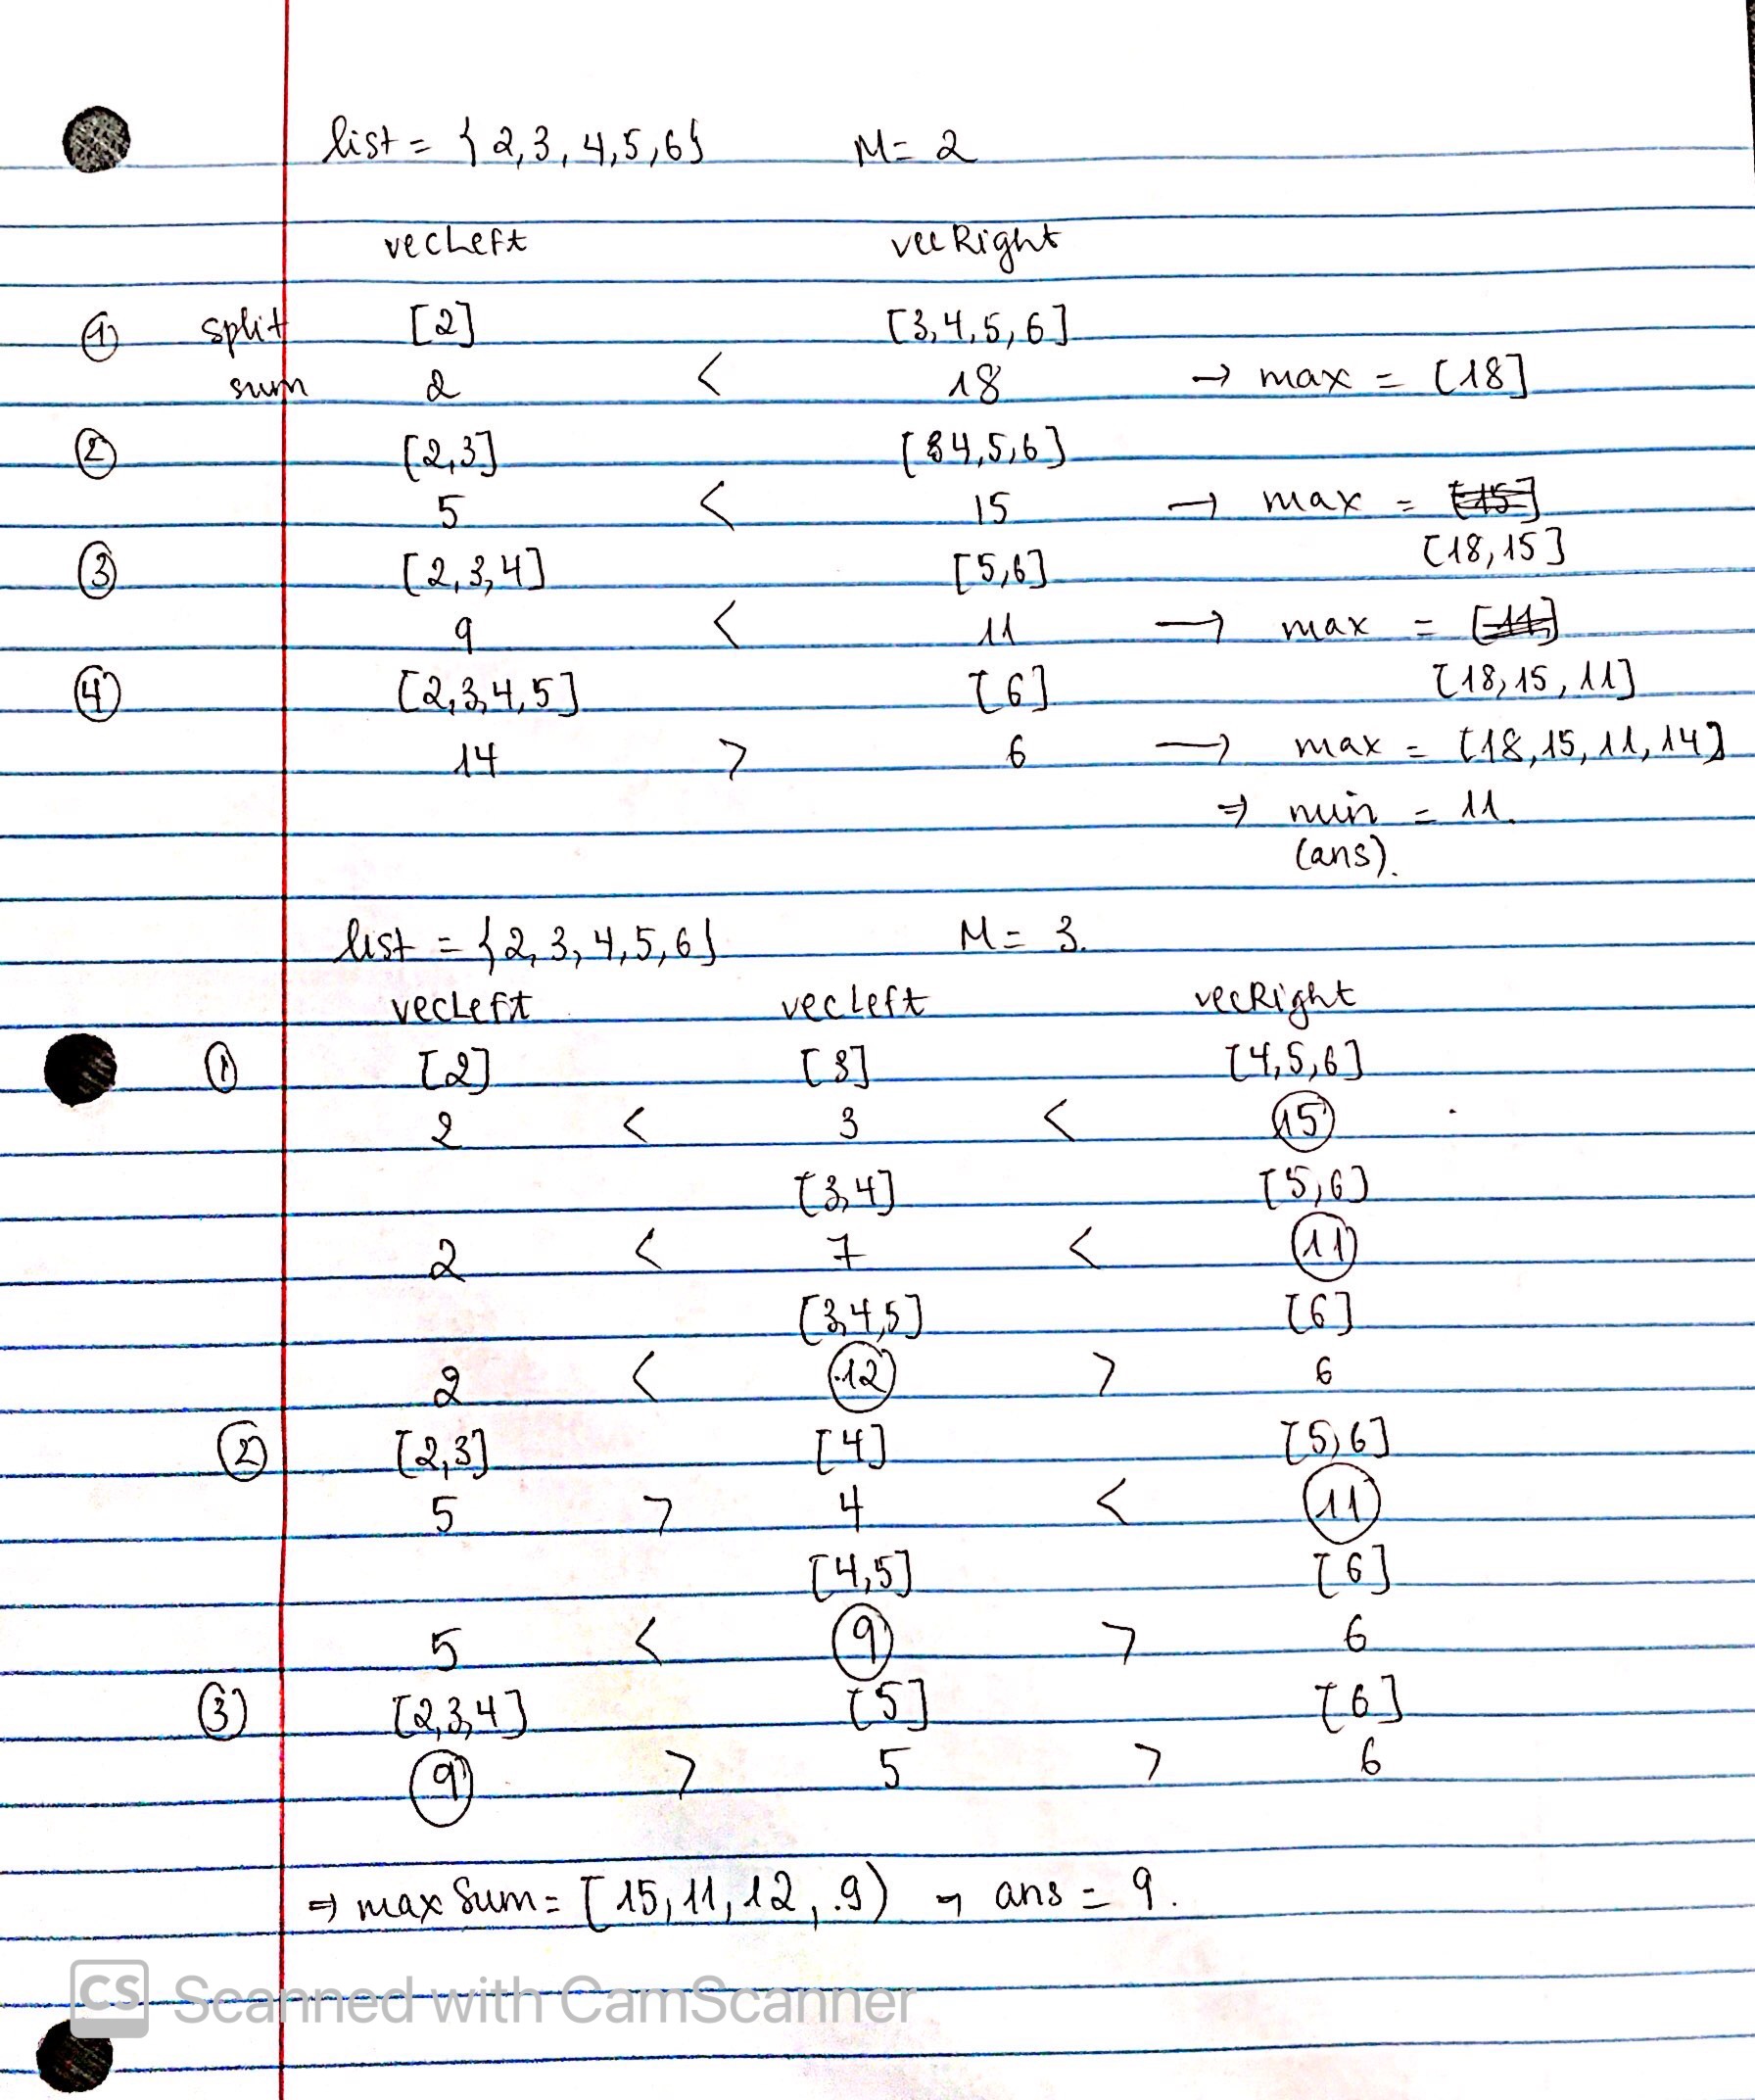 list = { 2, 3, 4, 5, 6 } M = 2
vecLeft vecRight
① split [2] [3, 4, 5, 6]
sum 2 < 18 → max = [18]
② [2,3] [34,5,6]
5 < 15 → max = [15]
[18, 15]
③ [2,3,4] [5,6]
9 < 11 → max = [11]
[18, 15, 11]
④ [2,3,4,5] [6]
14 > 6 → max = [18, 15, 11, 14]
⇒ min = 11.
(ans).
list = { 2, 3, 4, 5, 6 } M = 3.
vecLeft vecLeft vecRight
① [2] [3] [4,5,6]
2 < 3 < 15
[3,4] [5,6]
2 < 7 < 11
[3,4,5] [6]
2 < 12 > 6
② [2,3] [4] [5,6]
5 > 4 < 11
[4,5] [6]
5 < 9 > 6
③ [2,3,4] [5] [6]
9 > 5 > 6
⇒ max Sum = [15, 11, 12, 9) → ans = 9.
CS Scanned with CamScanner